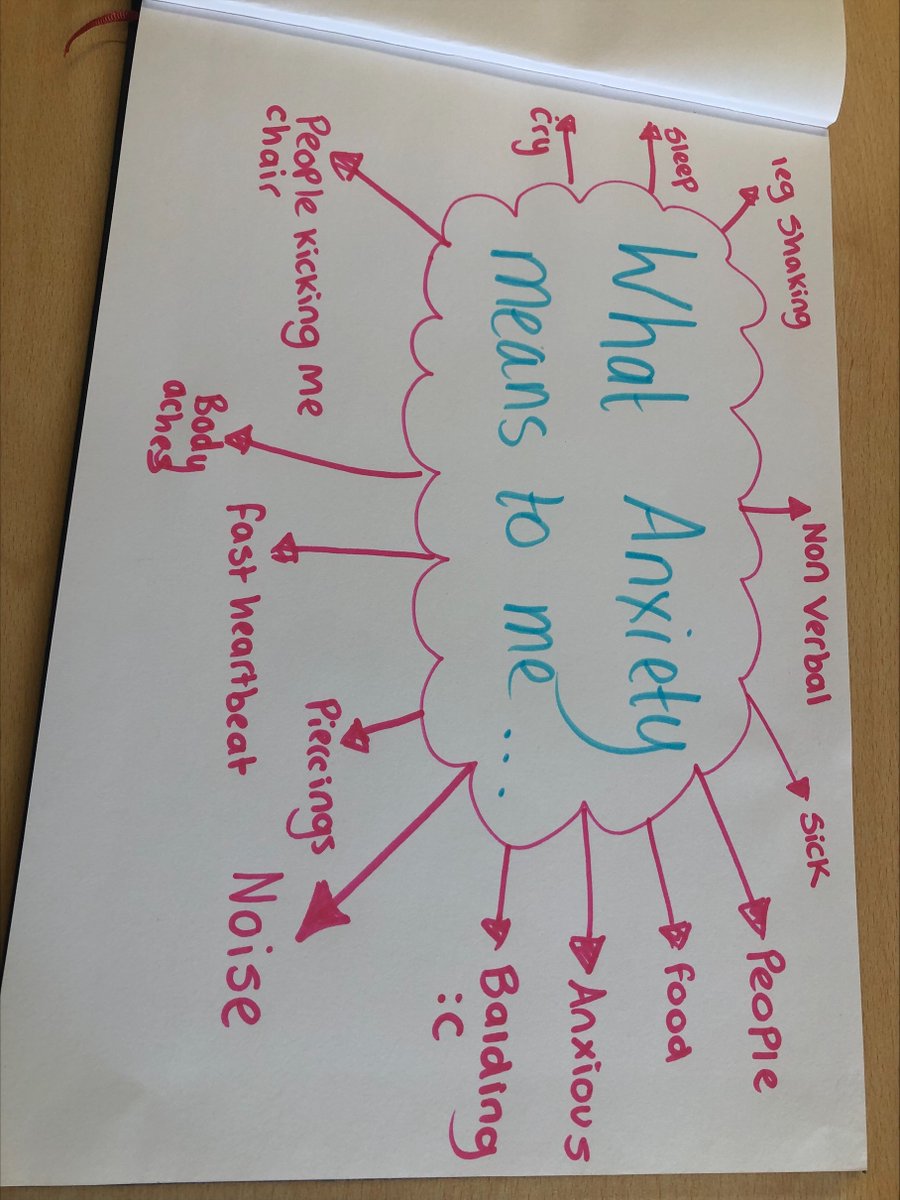 What Anxiety
means to me...
leg shaking
Non Verbal
Sick
People
food
Anxious
Balding
:C
Noise
Piercings
fast heartbeat
Body
aches
People kicking me
chair
cry
sleep